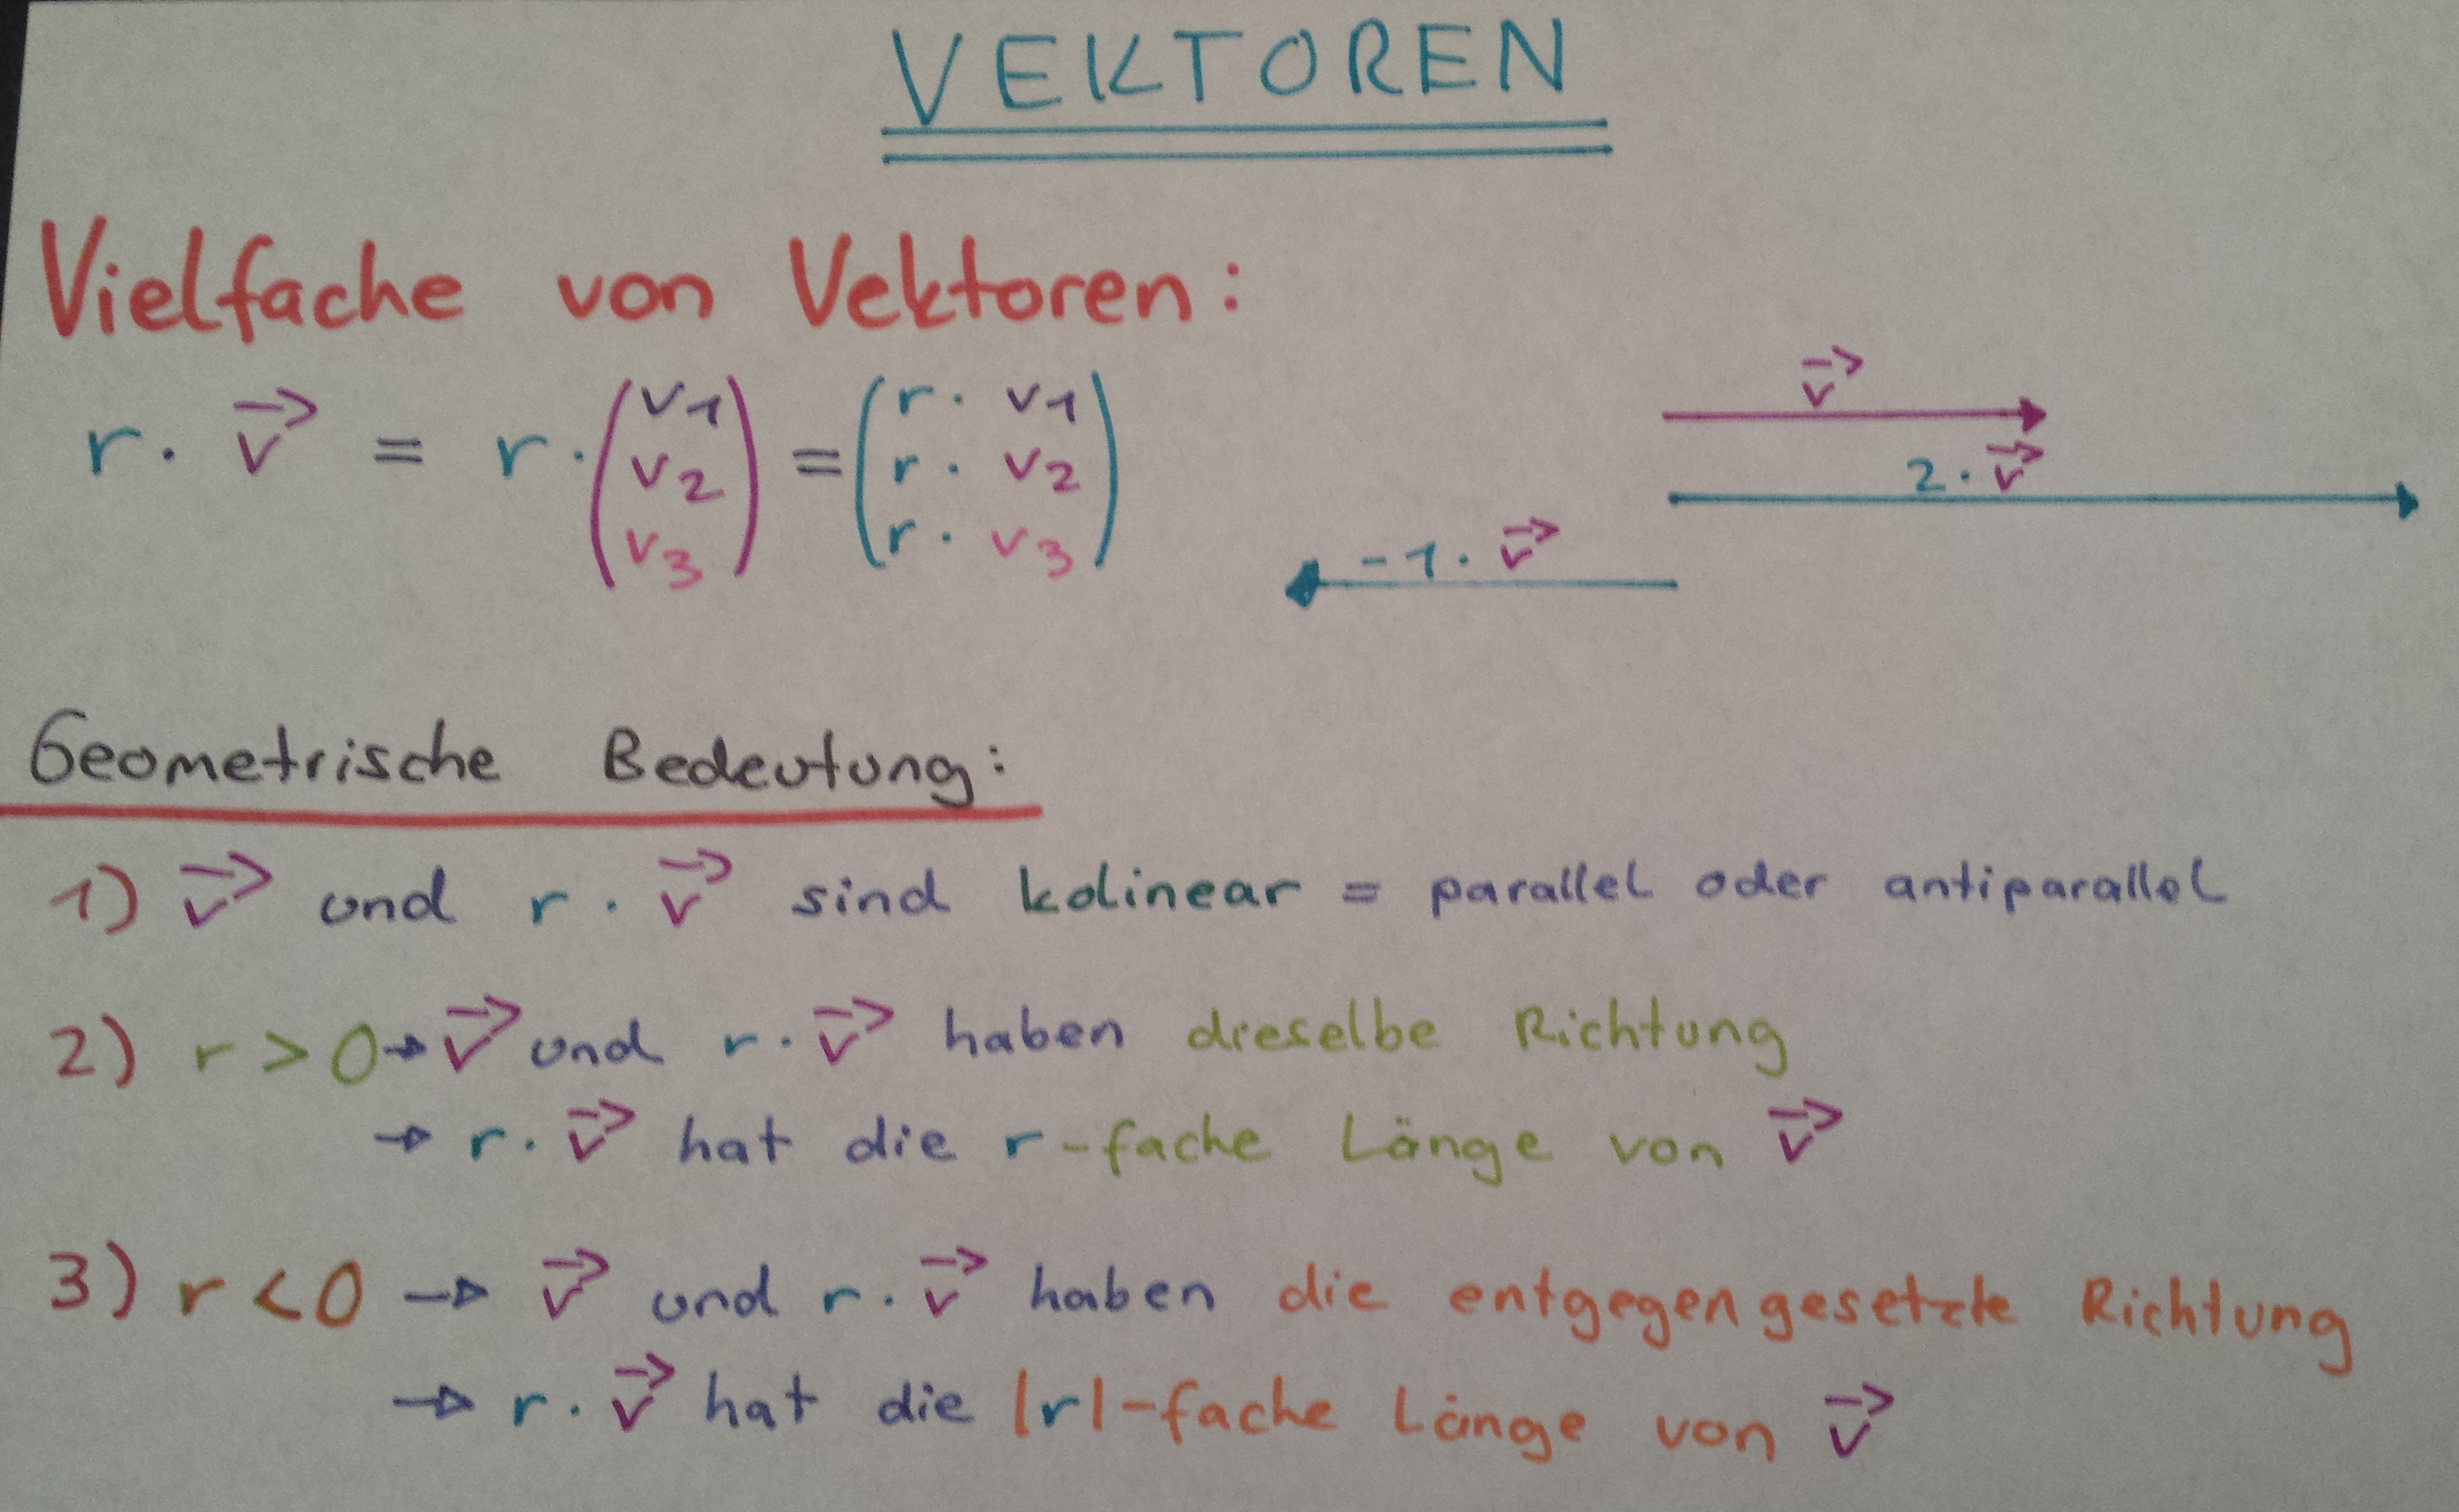 VEKTOREN
Vielfache von Vektoren:
r · v⃗ = r · (v1 v2 v3) = (r · v1 r · v2 r · v3)
v⃗
2 · v⃗
-1 · v⃗
Geometrische Bedeutung:
1) v⃗ und r · v⃗ sind kolinear = parallel oder antiparallel
2) r > 0 → v⃗ und r · v⃗ haben dieselbe Richtung
→ r · v⃗ hat die r-fache Länge von v⃗
3) r < 0 → v⃗ und r · v⃗ haben die entgegengesetzte Richtung
→ r · v⃗ hat die |r|-fache Länge von v⃗